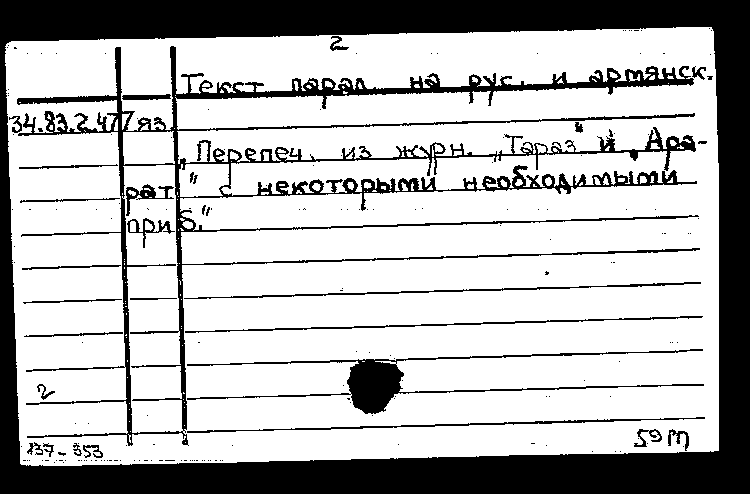 2
Текст парал. на рус. и армянск.
34.83.2.477 яз.
„Перепеч. из журн. „Тараз" и „Ара-
рат" с некоторыми необходимыми
приб."
2
837-353
59 М